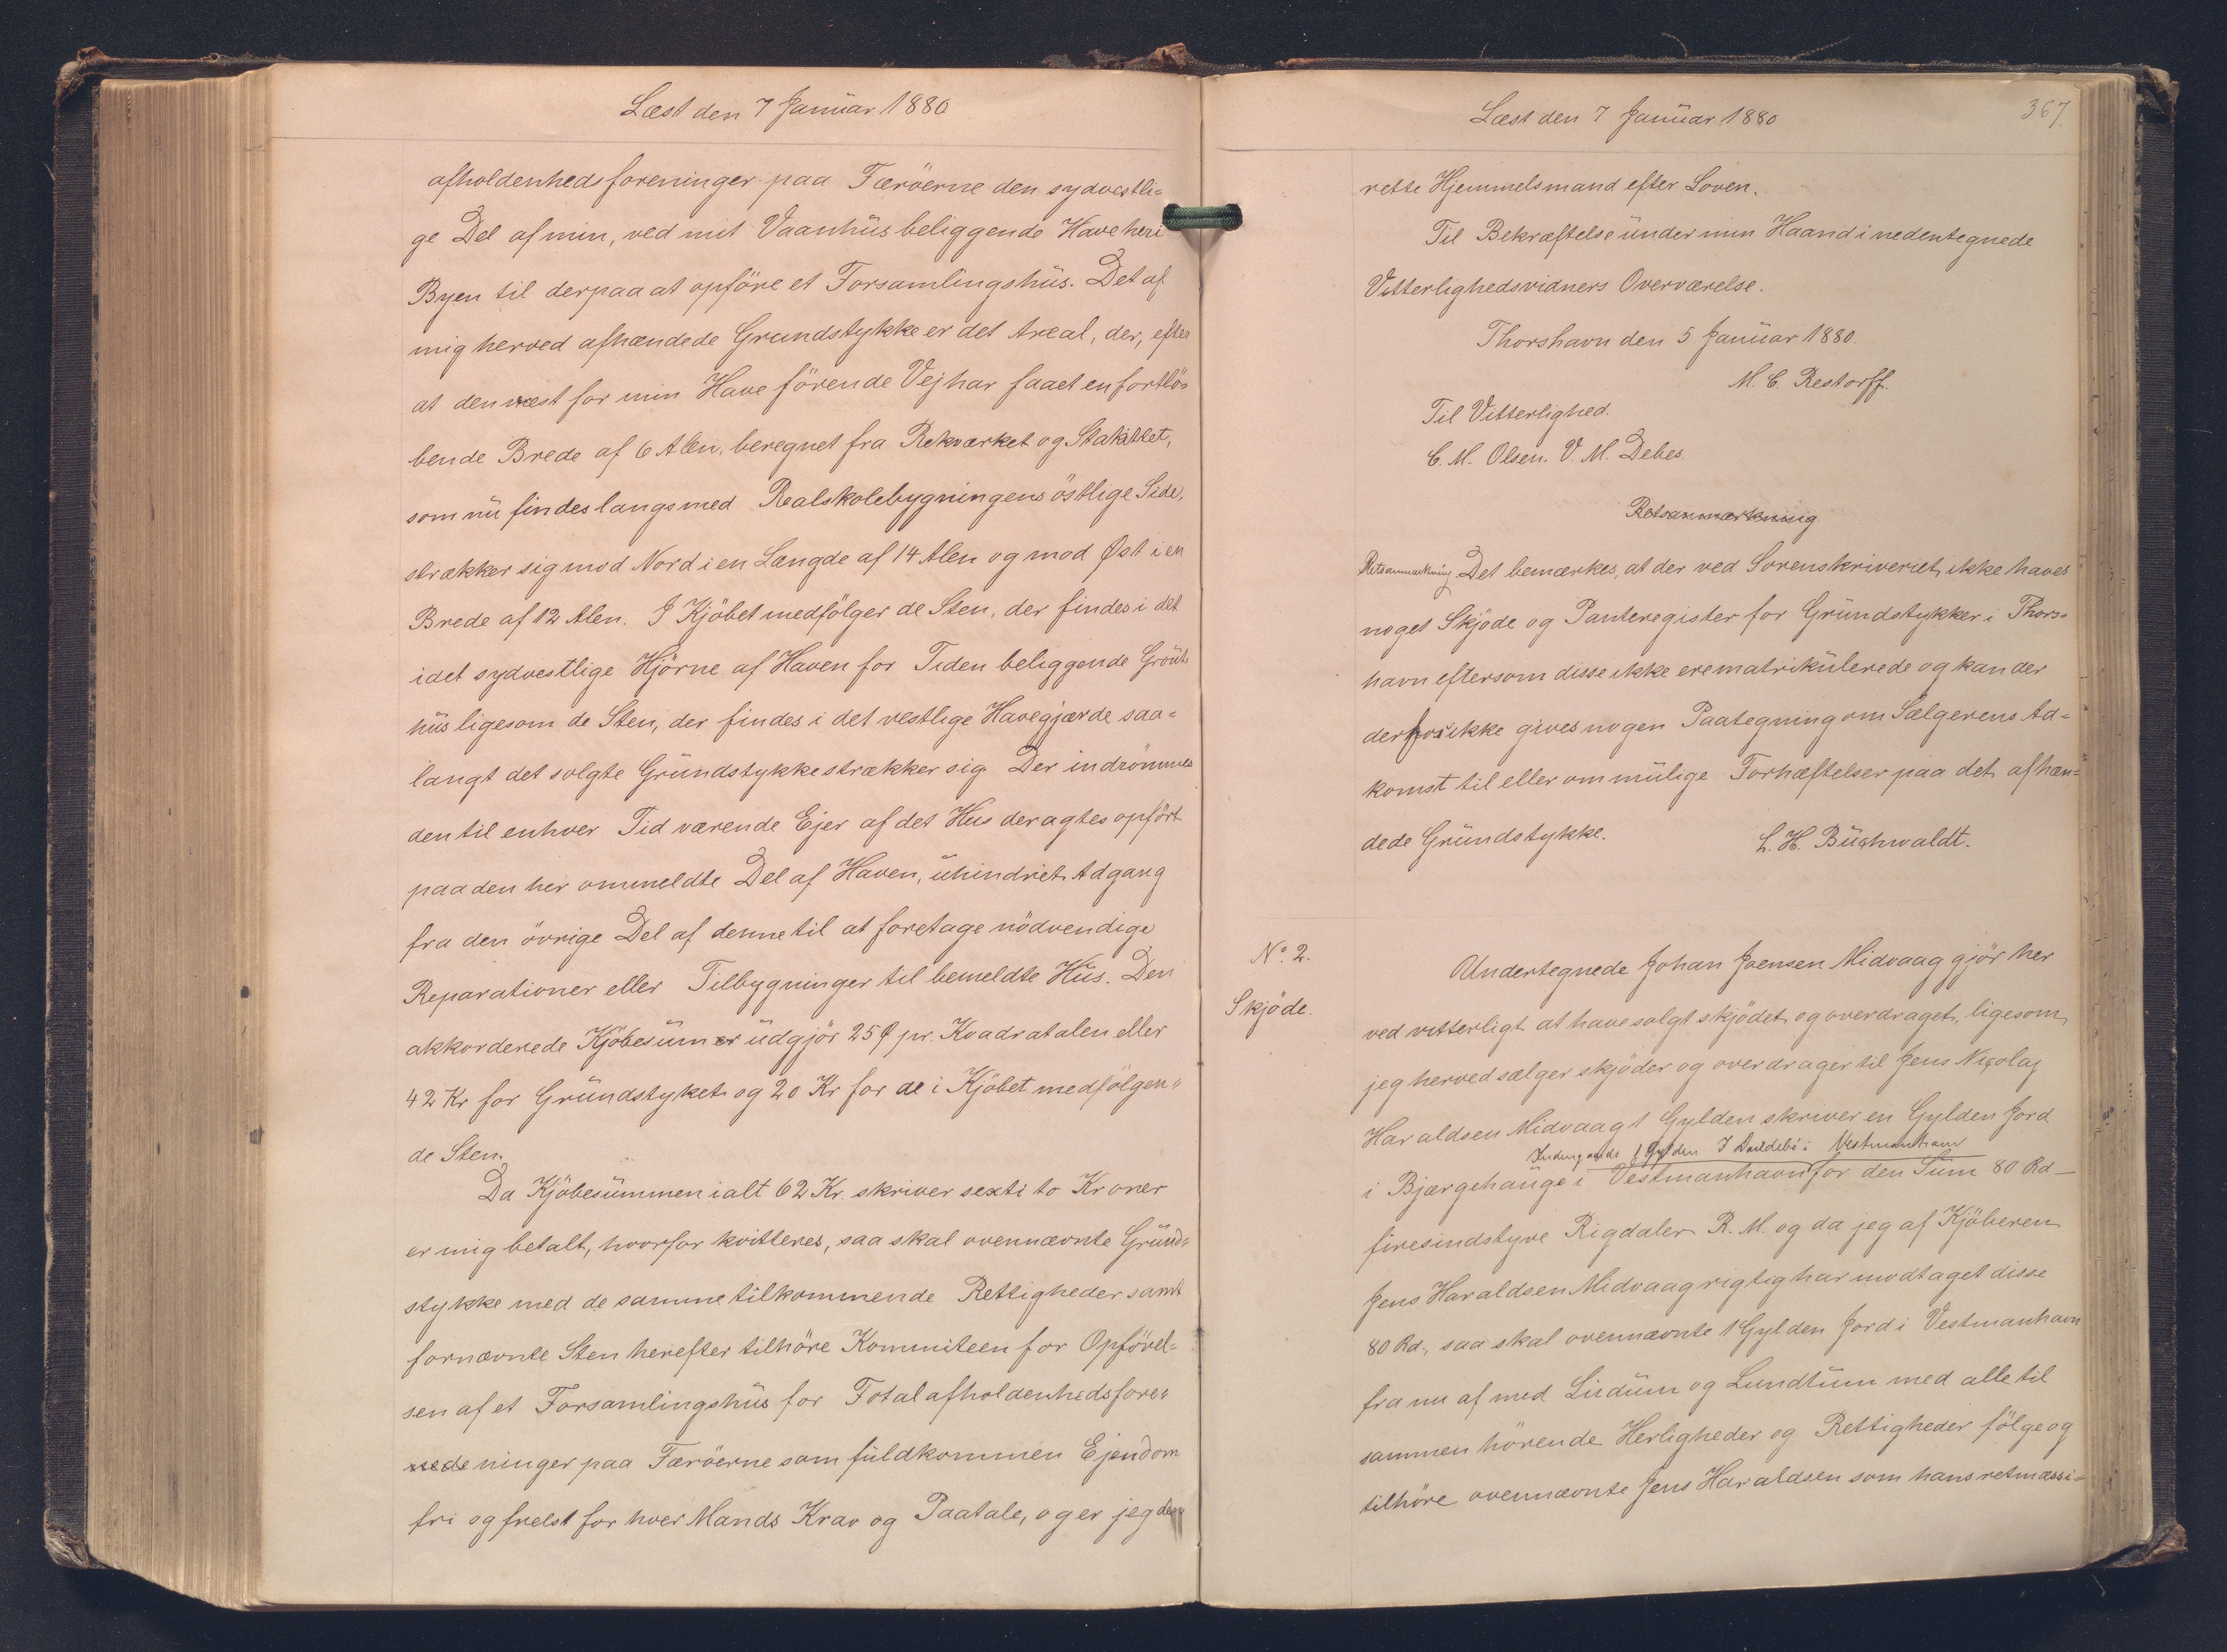 Læst den 7 Januar 1880
afholdenhedsforeninger paa Færöerne den sydvestli=
ge Del af min, ved mit Vaanhus beliggende Have her i
Byen til derpaa at opföre et Forsamlingshus. Det af
mig herved afhændede Grundstykke er det Areal, der, efter
at den vest for min Have förende Vej har faaet en fortlö=
bende Brede af 6 Alen, beregnet fra Rekværket og Stakittet,
som nu findes langsmed Realskolebygningens östlige Side,
strækker sig mod Nord i en Længde af 14 Alen og mod Øst i en
Brede af 12 Alen. I Kjöbet medfölger de Sten, der findes i det
i det sydvestlige Hjörne af Haven for Tiden beliggende Gröut=
hus ligesom de Sten, der findes i det vestlige Havegjærde saa=
langt det solgte Grundstykke strækker sig Der indrömmes
den til enhver Tid værende Ejer af det Hus der agtes opfört
paa den her ommeldte Del af Haven, uhindret Adgang
fra den övrige Del af denne til at foretage nödvendige
Reparationer eller Tilbygninger til bemeldte Hus. Den
akkorderede Kjöbesum er udgjör 25 Ø pr. Kvadratalen eller
42 Kr for Grundstyket og 20 Kr for de i Kjöbet medfölgen=
de Sten.
Da Kjöbesummen ialt 62 Kr. skriver sexti to Kroner
er mig betalt, hvorfor kvitteres, saa skal ovennævnte Grund=
stykke med de samme tilkommende Rettigheder samt
fornævnte Sten herefter tilhöre Kommiteen for Opförel=
sen af et Forsamlingshus for Totalafholdenhedsfore=
ninger paa Færöerne som fuldkommen Ejendom
fri og frelst for hver Mands Krav og Paatale, og er jeg den
Læst den 7 Januar 1880
367.
rette Hjemmelsmand efter Loven.
Til Bekræftelse under min Haand i nedentegnede
Vitterlighedsvidners Overværelse.
Thorshavn den 5 Januar 1880.
M. C. Restorff.
Til Vitterlighed.
C. M. Olsen. V. M. Debes.
Retsanmærkning
Retsanmærkning Det bemærkes, at der ved Sorenskriveriet ikke haves
noget Skjöde og Panteregister for Grundstykker i Thors=
havn eftersom disse ikke ere matrikulerede og kan der
derfor ikke gives nogen Paategning om Sælgerens Ad=
komst til eller om mulige Forhæftelser paa det afhæn=
dede Grundstykke.
L. H. Buchwaldt.
No. 2.
Skjöde.
Undertegnede Johan Joensen Midvaag gjör her
ved vitterligt at have solgt skjödet og overdraget, ligesom
jeg herved sælger skjöder og overdrager til Jens Nicolaj
Haraldsen Midvaag 1 Gylden skriver en Gylden Jord
1 Gylden I Vestmanhavn
i Bjærgehauge i Vestmanhavn for den Sum 80 Rd
firesindstyve Rigdaler R. M. og da jeg af Kjöberen
Jens Haraldsen Midvaag rigtig har modtaget disse
80 Rd., saa skal ovennævnte 1 Gylden Jord i Vestmanhavn
fra nu af med Ludum og Lundtum med alle til
sammen hörende Herligheder og Rettigheder fölge og
tilhöre ovennævnte Jens Haraldsen som hans retmæssi=